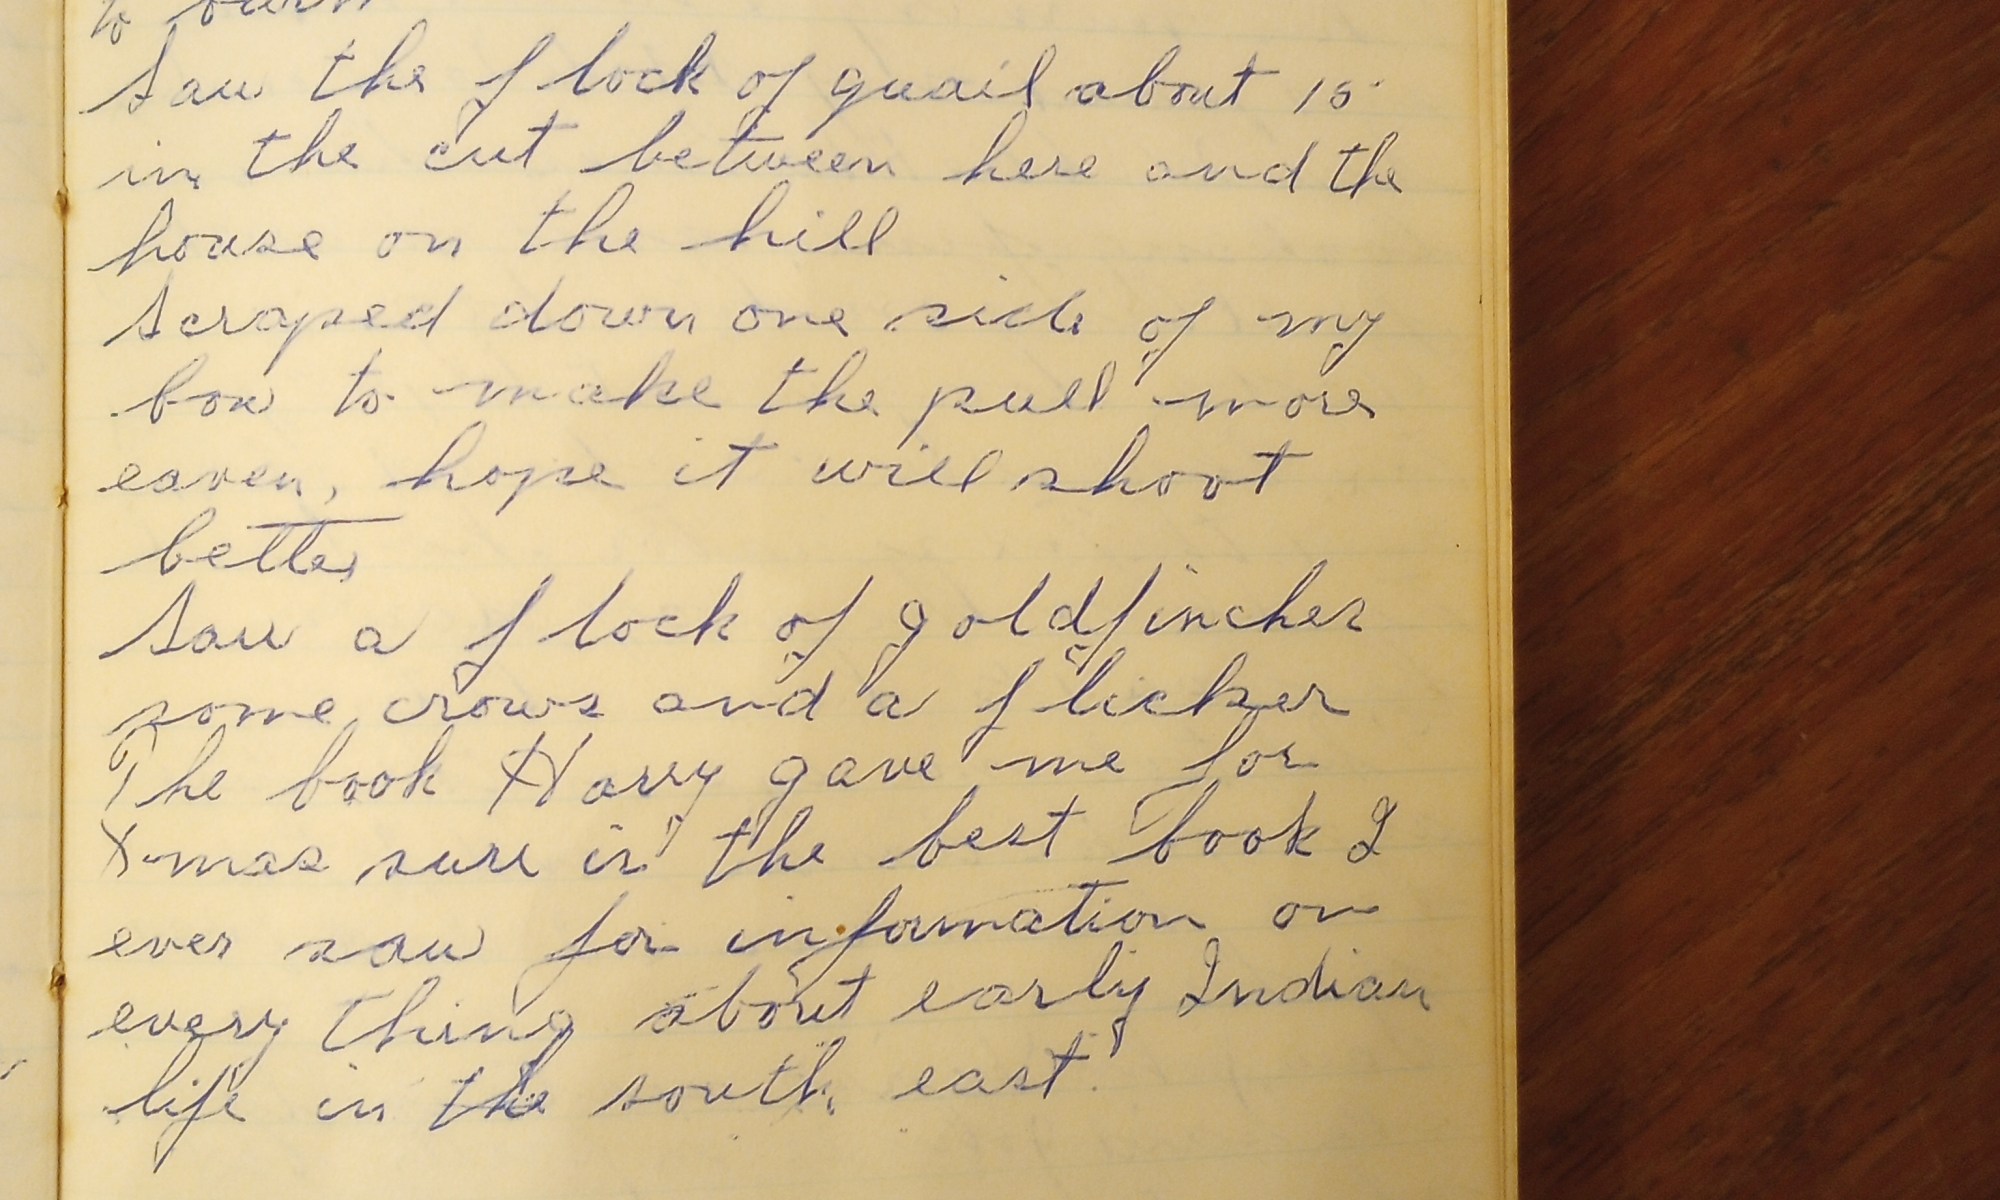 to burn
Saw the flock of quail about 15
in the cut between here and the
house on the hill
Scraped down one side of my
bow to make the pull more
eaven, hope it will shoot
better
Saw a flock of goldfinches
some crows and a flicker
The book Harry gave me for
X-mas sure is the best book I
ever saw for information on
every thing about early Indian
life in the south east.